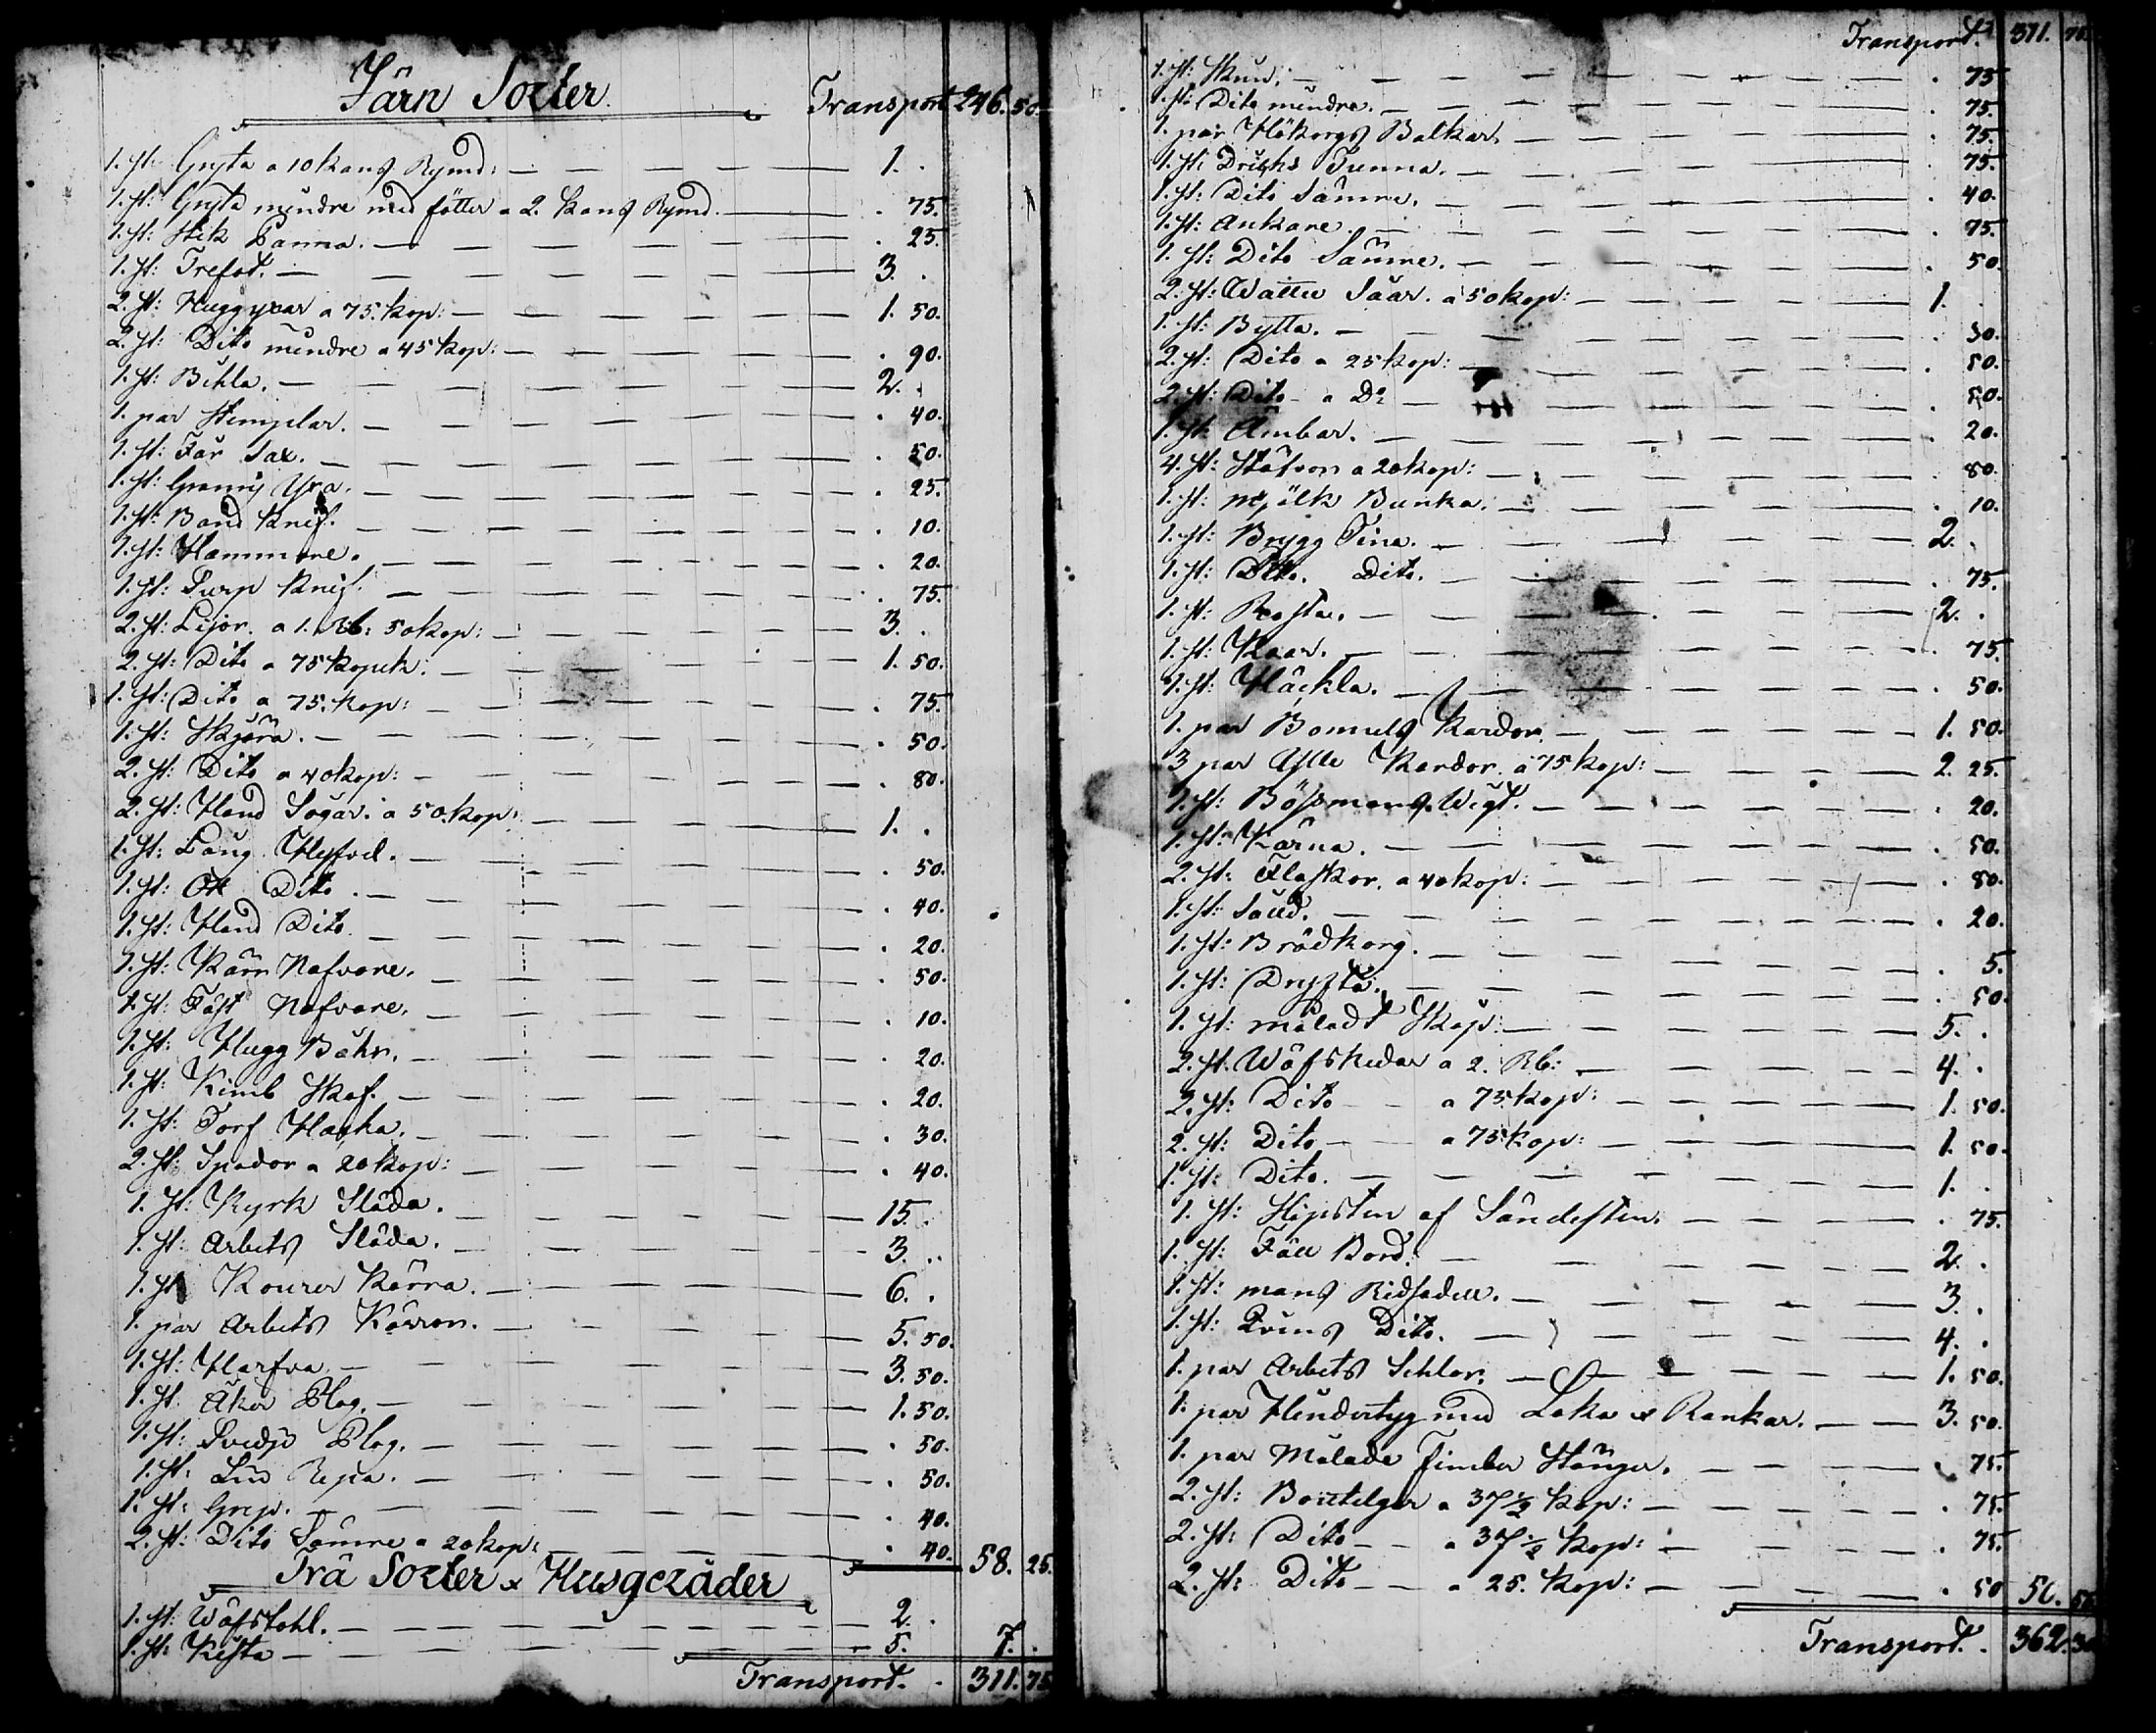 Järn Sorter. Transport 246. 50.
1. st: Gryta a 10 Kans Rymd: 1.
1. st: Gryta mindre med fötter a 2. Kans Rymd. 75.
1. st: Stek Panna. 25.
1. st: Trefot. 3.
2. st: Huggyxar a 75. kop: 1. 50.
2. st: Dito mindre a 45 kop: 90.
1. st: Bihla. 2.
1. par Stemplar. 40.
1. st: Får Sax. 50.
1. st: Yxa. 25.
1. st: Band Knif. 10.
1. st: Hammare. 20.
1. st: Knif. 75.
2. st: Lijor. a 1. Rb: 50 kop: 3.
2. st: Dito a 75 Kopek: 1. 50.
1. st: Dito a 75. kop: 75.
1. st: Skjära. 50.
2. st: Dito a 40 kop: 80.
2. st: Hand Sogar. a 50. kop: 1.
1. st: Lång Hyfvel. 50.
1. st: Ok Dito. 40.
1. st: Hand Dito. 20.
1. st: Kärn Nafvare. 50.
1. st: Fäst Nafvare. 10.
1. st: Hugg Båhr. 20.
1. st: Kimb Skaf. 20.
1. st: Torf Hacka. 30.
2. st: Spador a 20 kop: 40.
1. st: Kyrk Släda. 15.
1. st: Arbets Släda. 3.
1. st: Kourer Kärra. 6.
1. par Arbets Kärror. 5. 50.
1. st: Harfva 3. 50.
1. st: Åker Plog. 1. 50.
1. st: Svedje Plog. 50.
1. st: Lin Repa. 50.
1. st: Grep. 40.
2. st: Dito Sämre a 20 kop: 40. 58. 25.
Trä Sorter & Husgeråder
1. st: Wäfstohl. 2.
1. st: Kista 5. 7.
Transport. 311. 75
Transport. 311. 75.
1. st: 75
1. st: Dito mindre. 75.
1. par Hökorgs Balkar. 75.
1. st: Dricks Tunna. 75.
1. st: Dito Sämre. 40.
1. st: Ankare. 75.
1. st: Dito Sämre. 50.
2. st: Watten Såar. a 50 kop: 1.
1. st: Bytta. 30.
2. st: Dito a 25 kop: 50.
2. st: Dito a Do 50.
1. st: Ämbar. 20.
4. st: Stäfvor a 20 kop: 80.
1. st: Mjölk Bunka. 10.
1. st: Brygg Tina. 2.
1. st: Dito. Dito. 75.
1. st: Rosta. 2.
1. st: Kaar. 75.
1. st: Häckla. 50.
1. par Bomuls Kardor 1. 50.
3 par Ylle Kardor. a 75 kop: 2. 25.
1. st: Bössmans Wigt. 20.
1. st: Kärna. 50.
2. st: Flaskor. a 40 kop: 80.
1. st: Såll. 20.
1. st: Brödkorg. 5.
1. st: Dryfta. 50.
1. st: måladt Skåp: 5.
2. st. Wäfskedar a 2. Rb: 4.
2. st: Dito a 75 kop: 1. 50.
2. st: Dito a 75 kop: 1. 50.
1. st: Dito. 1.
1. st: Slipsten af Sandesten. 75.
1. st: Fäll Bord. 2.
1. st: mans Ridsadell. 3.
1. st: Qvins Dito. 4.
1. par Arbets Sehlar. 1. 50.
1. par Hindertyg med Loka & Rankar. 3. 50.
1. par Målade Fimber Stänger. 75.
2. st: Boutelger a 37 ½ kop: 75.
2. st: Dito a 37 ½ kop: 75.
2. st: Dito a 25. kop: 50 50. 55
Transport. 362. 30